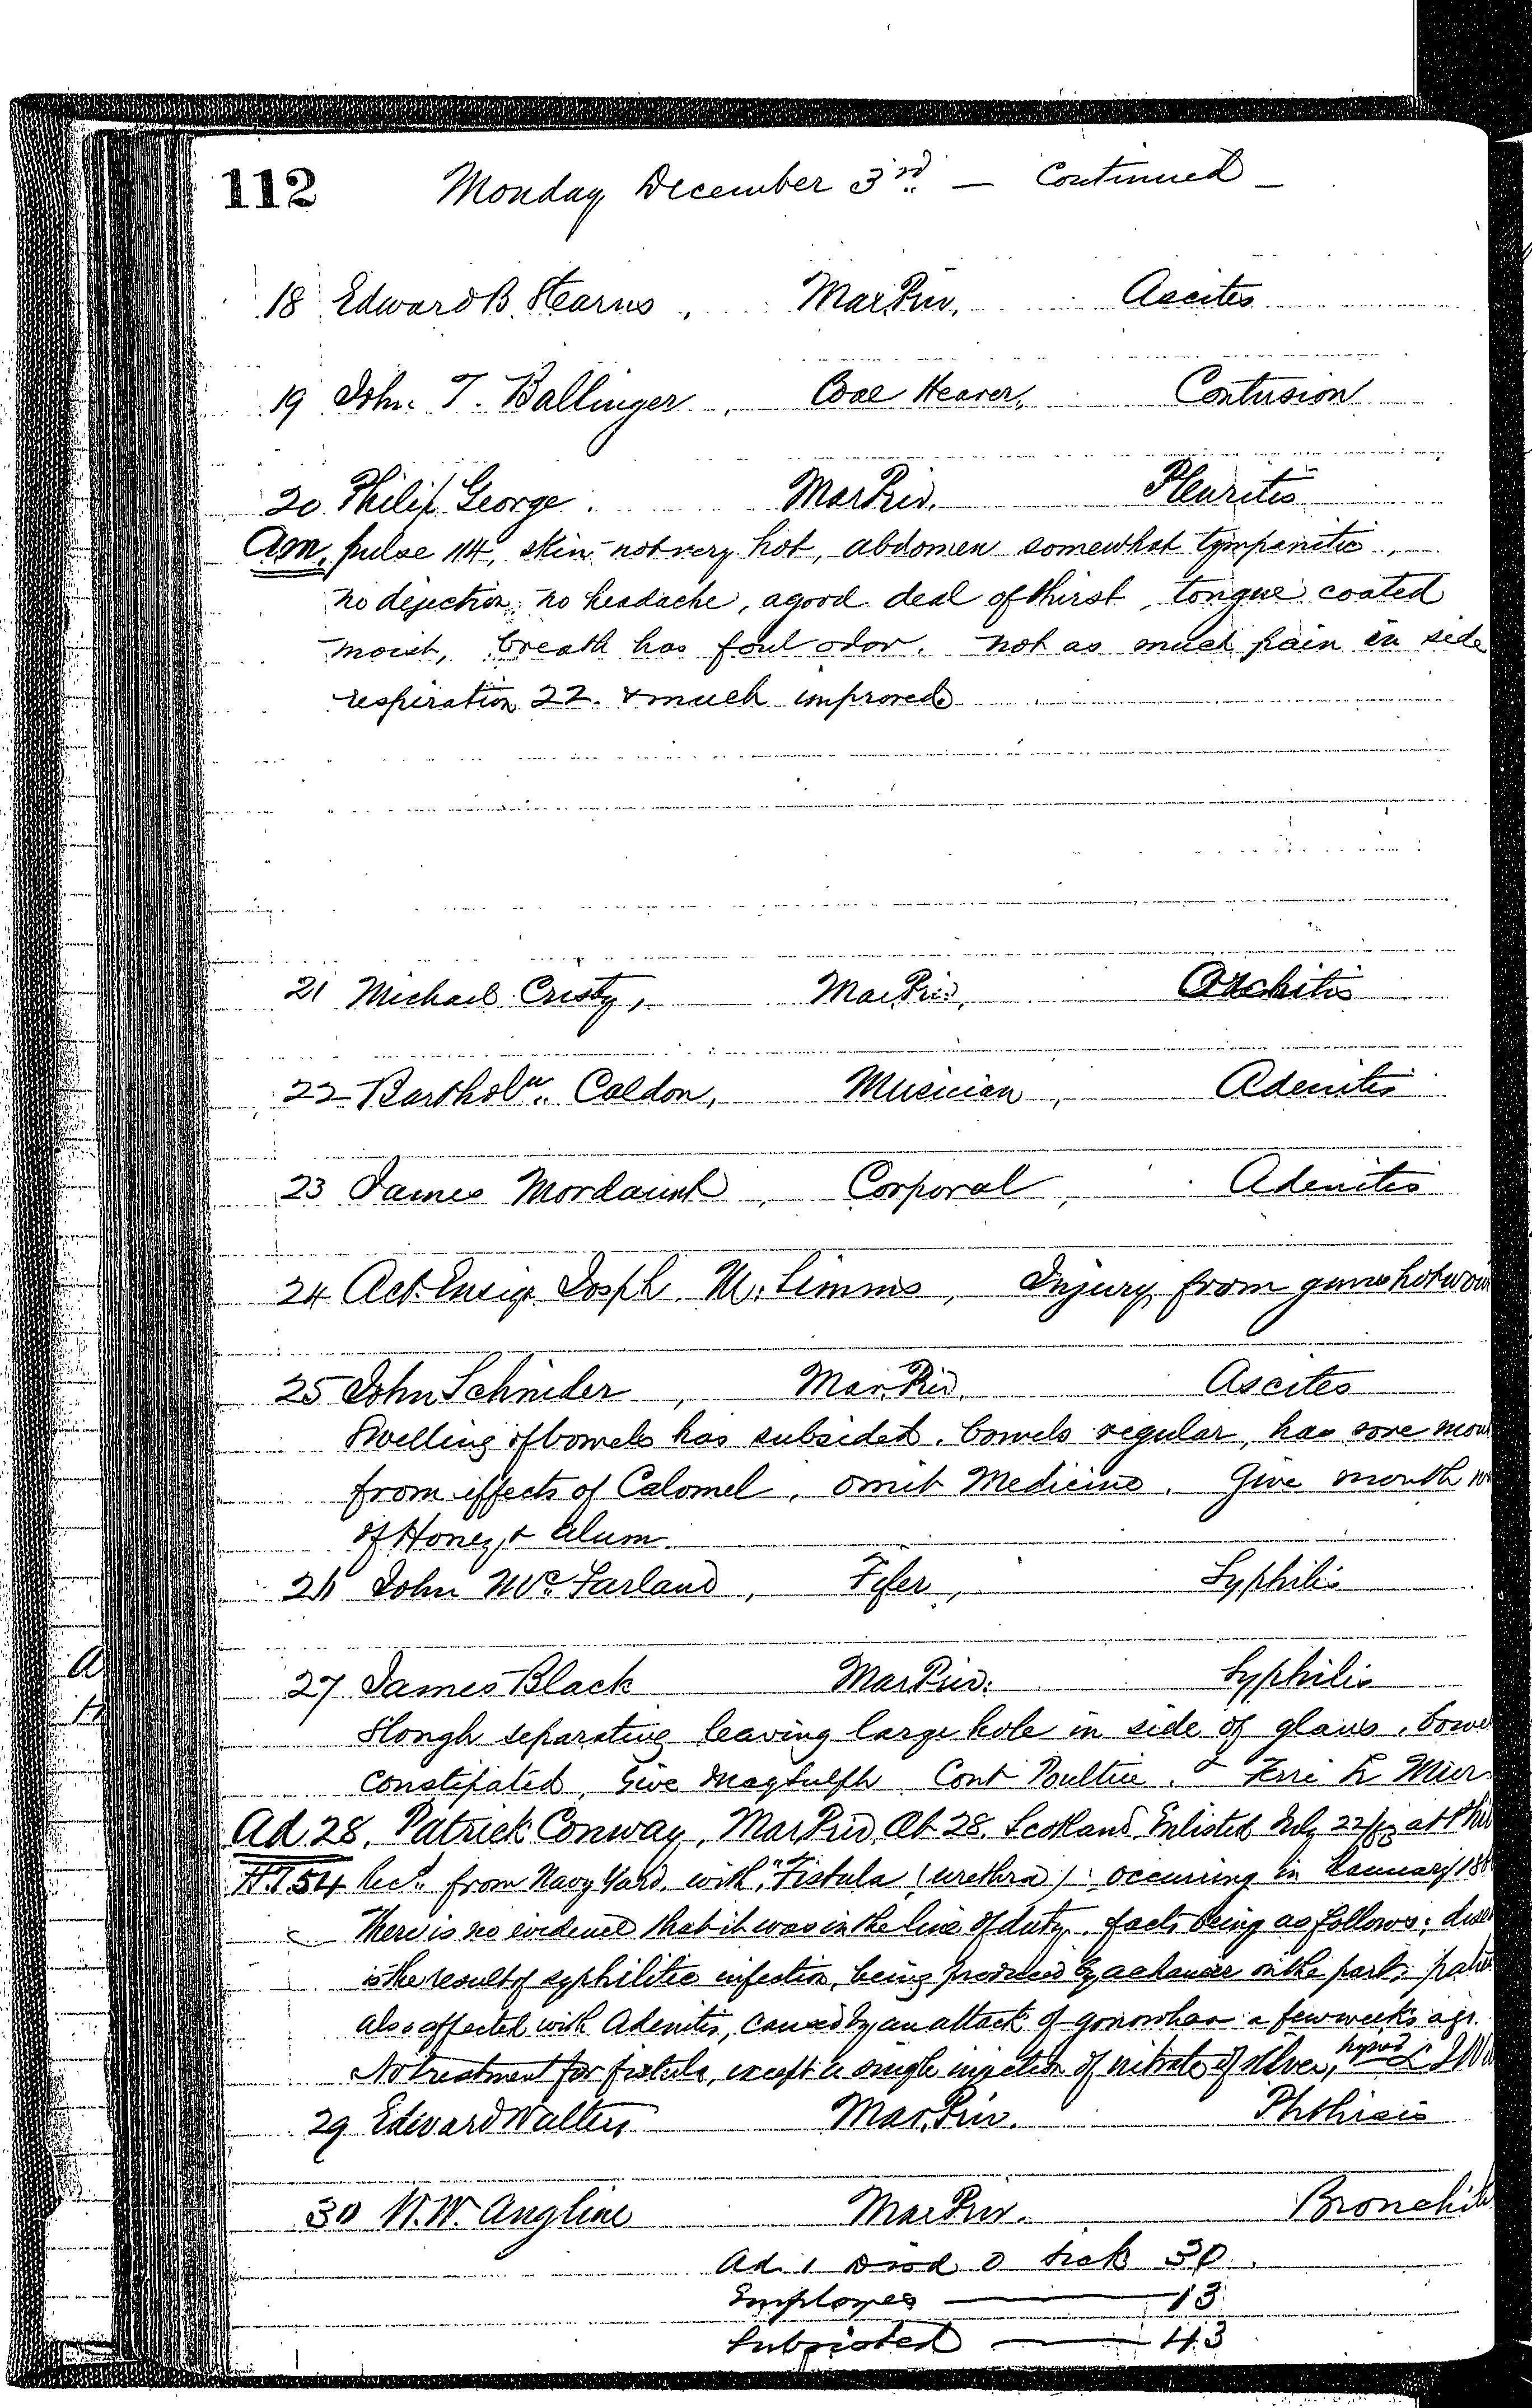 112 Monday December 3rd — Continued —
18 Edward B. Stearns, Mar. Priv. Ascites
19 John. T. Ballinger, Coal Heaver, Contusion
20 Philip George. Mar Priv. Pleuritis
Am. pulse 114, skin not very hot, abdomen somewhat tympanitic,
no dejection, no headache, a good deal of thirst, tongue coated
moist, breath has foul odor. not as much pain in side
respiration 22. & much improved
21 Michael Cristy, Mar Priv, Orchitis
22 Bartholw. Caldon, Musician, Adenitis
23 James Mordaunt, Corporal, Adenitis
24 Act. Ensign Josph. M. Simms, Injury from gunshot wou
25 John Schnider, Mar. Priv. Ascites
Swelling of bowels has subsided. bowels regular, has sore mou
from effects of Calomel. omit Medicine. Give mouth w
of Honey & Alum.
26 John McFarland, Fifer, Syphilis
27 James Black Mar Priv. Syphilis
Slough separating leaving large hole in side of glans. bowe
constipated, Give Mag Sulph Cont Poultice. & Ferri
Ad 28. Patrick Conway, Mar Priv. 28. Scotland Enlisted July 22/ at
H.T. 54 Recd. from Navy Yard. with "Fistula (urethra)": occurring in January 18
There is no evidence that it was in the line of duty. facts being as follows: disea
is the result of syphilitic infection, being produced by a chancre on the part; patie
also affected with Adenitis, caused by an attack of gonorrhœa a few weeks ago.
No treatment for fistula, except a single injection of nitrate of silver,
29 Edward Walters Mar. Priv. Phthisis
30 W. W. Angline Mar Priv. Bronchiti
Ad. 1 Disd 0 Sick 30
Employes — 13
Subsisted — 43